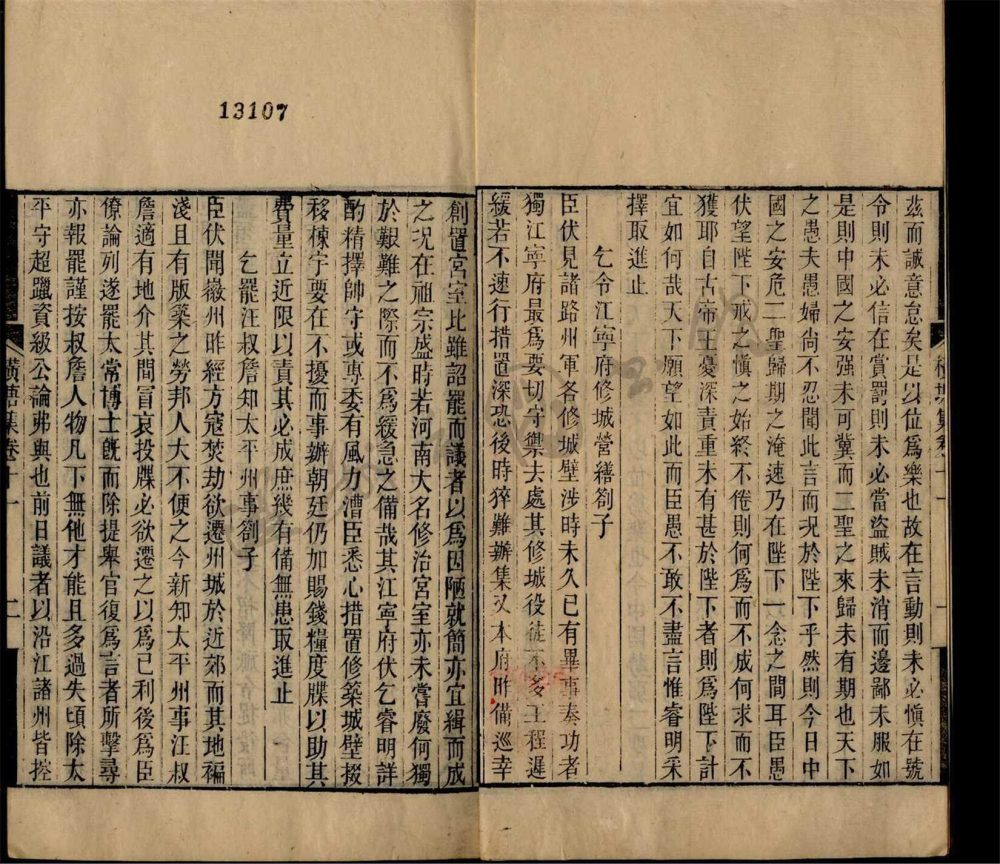 13107
茲而誠意怠矣是以位爲樂也故在言動則未必愼在號
令則未必信在賞罰則未必當盜賊未消而邊鄙未服如
是則中國之安强未可冀而二聖之來歸未有期也天下
之愚夫愚婦尚不忍聞此言而况於陛下乎然則今日中
國之安危二聖歸期之淹速乃在陛下一念之間耳臣愚
伏望陛下戒之愼之始終不倦則何爲而不成何求而不
獲耶自古帝王憂深責重未有甚於陛下者則爲陛下計
宜如何哉天下願望如此而臣愚不敢不盡言惟睿明采
擇取進止
乞令江寧府修城營繕劄子
臣伏見諸路州軍各修城壁涉時未久已有畢事奏功者
獨江寧府最爲要切守禦去處其修城役徒不多工程遲
緩若不速行措置深恐後時猝難辦集又本府昨備巡幸
創置宮室比雖詔罷而議者以爲因陋就簡亦宜緝而成
之况在祖宗盛時若河南大名修治宮室亦未嘗廢何獨
於艱難之際而不爲緩急之備哉其江寧府伏乞睿明詳
酌精擇帥守或專委有風力漕臣悉心措置修築城壁掇
移棟宇要在不擾而事辦朝廷仍加賜錢糧度牒以助其
費量立近限以責其必成庶幾有備無患取進止
乞罷汪叔詹知太平州事劄子
臣伏聞徽州昨經方寇焚劫欲遷州城於近郊而其地褊
淺且有版築之勞邦人大不便之今新知太平州事汪叔
詹適有地介其間冒哀投牒必欲遷之以爲己利後爲臣
僚論列遂罷太常博士旣而除提舉官復爲言者所擊尋
亦報罷謹按叔詹人物凡下無他才能且多過失頃除太
平守超躐資級公論弗與也前日議者以沿江諸州皆控
橫塘集卷十一
二